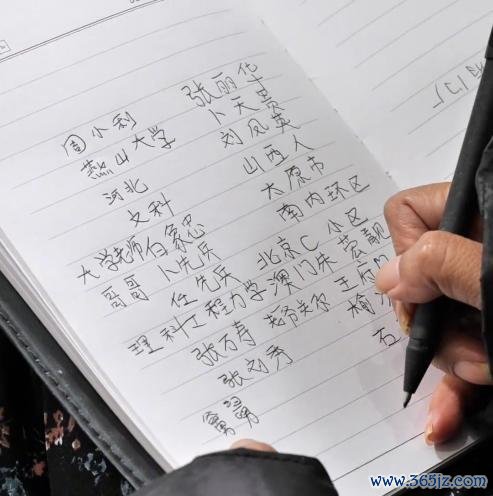 周小利 张丽华
燕山大学 卜天贵
河北 刘凤英
文科 山西人
大学老师白家忠 太原市
哥哥 卜先兵 南内环区
任先兵 北京C小区
理科工程力学澳门朱宏靓
张万寿 郑关尔 王
张刘秀 榆
石
www.365jz.com